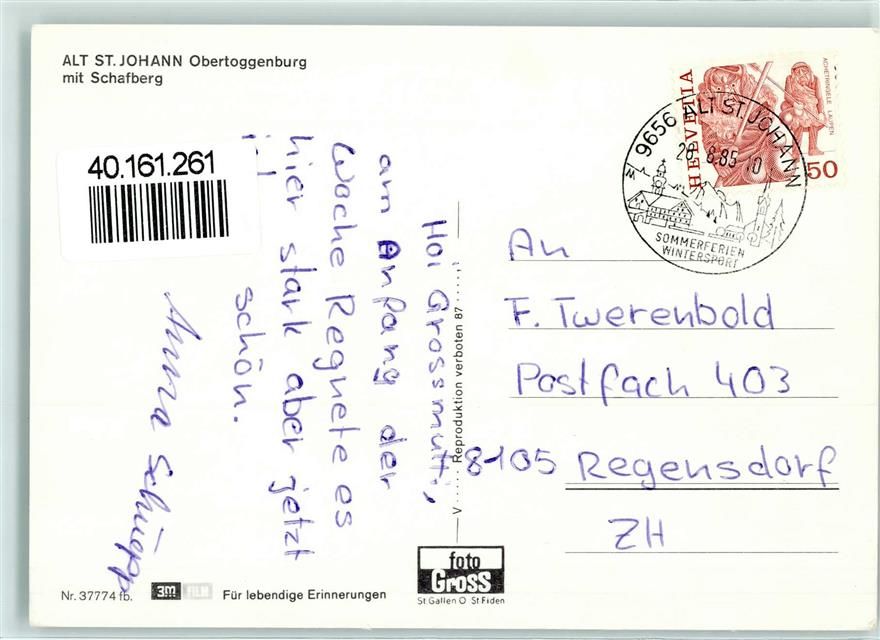 ALT ST. JOHANN Obertoggenburg
mit Schafberg
40.161.261
Hoi Grossmutti,
am Anfang der
Woche Regnete es
hier stark aber jetzt
schön.
Anna Schüepp
V Reproduktion verboten 87
HELVETIA
ACHETRINGELE LAUPEN
50
9656 ALT ST. JOHANN
8.85-10
SOMMERFERIEN
WINTERSPORT
An
F. Twerenbold
Postfach 403
8105 Regensdorf
ZH
Nr. 37774 fb.
3M FILM
Für lebendige Erinnerungen
foto
Gross
St Gallen O St Fiden